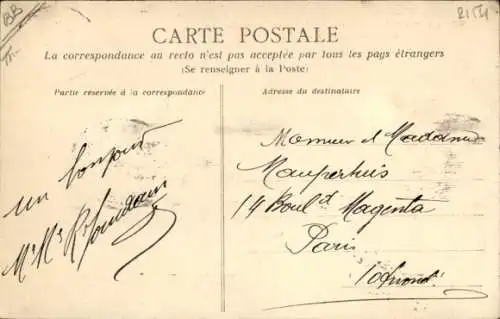 BB
CARTE POSTALE
La correspondance au recto n'est pas acceptée par tous les pays étrangers
(Se renseigner à la Poste)
Partie réservée à la correspondance
Adresse du destinataire
un bonjour
Monsieur et Madame
Mauperhuis
14 Boul.d Magenta
Paris